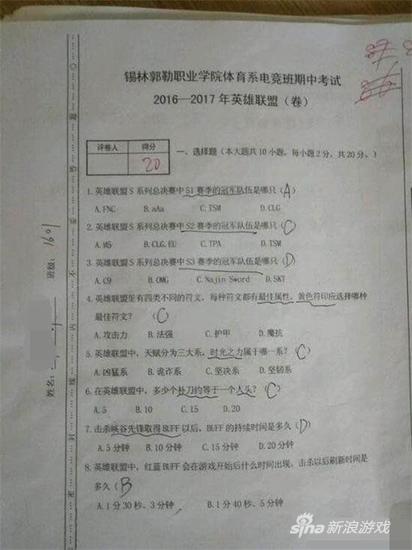 锡林郭勒职业学院体育系电竞班期中考试
2016—2017年英雄联盟（卷）
评卷人 得分
20
一、选择题（本大题共10小题，每小题2分，共20分。）
1.英雄联盟S系列总决赛中S1赛季的冠军队伍是哪只（A）
A.FNC B.aAa C.TSM D.CLG
2.英雄联盟S系列总决赛中S2赛季的冠军队伍是哪只（C）
A.M5 B.CLG.EU C.TPA D.TSM
3.英雄联盟S系列总决赛中S3赛季的冠军队伍是哪只（D）
A.C9 B.OMG C.Najin Sword D.SKT
4.英雄联盟里有四类不同的符文，每种符文都有最佳属性，黄色符印应选择哪种
最佳符文？（C）
A.攻击力 B.法强 C.护甲 D.魔抗
5.英雄联盟中，天赋分为三大系，时光之力属于哪一系？（C）
A.凶猛系 B.诡诈系 C.坚决系 D.坚韧系
6.在英雄联盟中，多少个补刀约等于一个人头？（C）
A.5 B.10 C.15 D.20
7.击杀峡谷先锋取得BUFF以后，BUFF的持续时间是多久（D）
A.5分钟 B.10分钟 C.15分钟 D.20分钟
8.英雄联盟中，红蓝BUFF会在游戏开始后什么时间出现，击杀以后刷新时间是
多久（B）
A.1分30秒、3分钟 B.1分40秒、5分钟
班级：1601
姓名：
sina新浪游戏